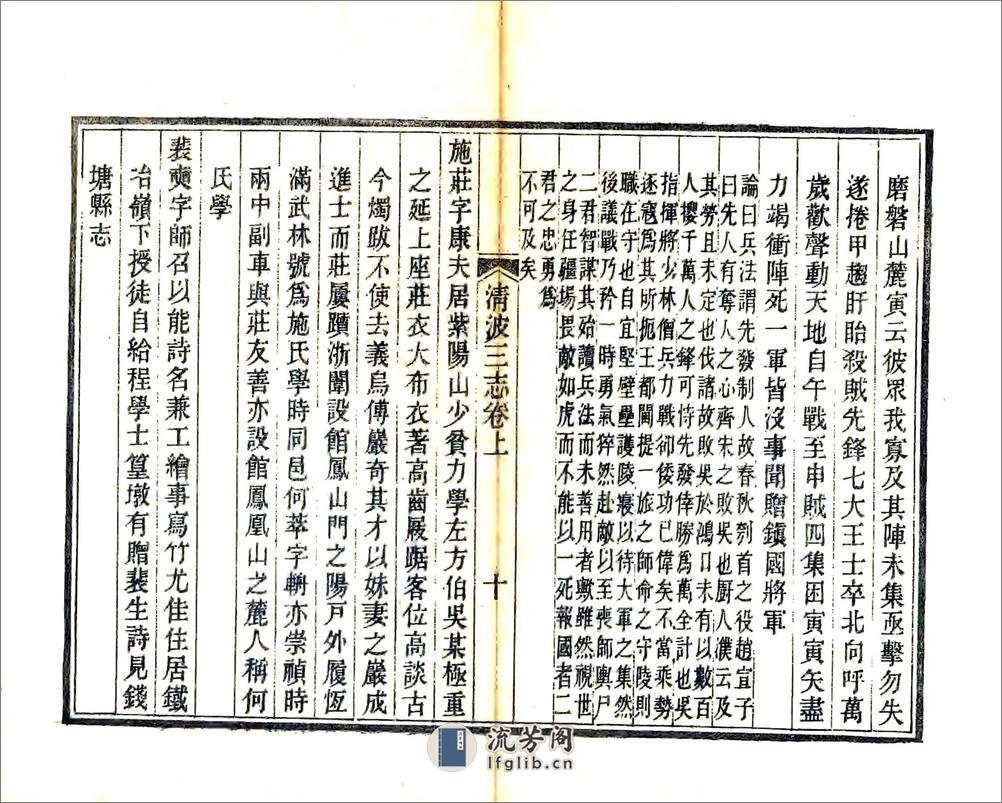 磨磐山麓寅云彼眾我寡及其陣未集亟擊勿失
遂捲甲趨盱眙殺賊先鋒七大王士卒北向呼萬
歲歡聲動天地自午戰至申賊四集困寅寅矢盡
力竭衝陣死一軍皆沒事聞贈鎮國將軍
論曰兵法謂先發制人故春秋刳首之役趙宣子
曰先人有奪人之心齊宋之敗吳也厨人濮云及
其勞且未定也伐諸故敗吳於鴻口未有以數百
人攖千萬人之鋒可恃先發倖勝爲萬全計也吳
指揮將少林僧兵力戰卻倭功已偉矣不當乘勢
逐寇爲其所扼王都閫提一旅之師命之守陵則
職在守也自宜堅壁壘護陵寢以待大軍之集然
後議戰乃矜一時勇氣猝然赴敵以至喪師輿尸
二君智謀其始讀兵法而未善用者歟雖然視世
之身任疆場畏敵如虎而不能以一死報國者二
君之忠勇爲
不可及矣
清波三志卷上
十
施莊字康夫居紫陽山少貧力學左方伯吳某極重
之延上座莊衣大布衣著高齒屐踞客位高談古
今燭跋不使去義烏傅巖奇其才以妹妻之巖成
進士而莊屢躓浙闈設館鳳山門之陽戸外履恆
滿武林號爲施氏學時同邑何萃字輈亦崇禎時
兩中副車與莊友善亦設館鳳凰山之麓人稱何
氏學
裴奭字師召以能詩名兼工繪事寫竹尤佳住居鐵
冶嶺下授徒自給程學士篁墩有贈裴生詩見錢
塘縣志
流芳阁
lfglib.cn